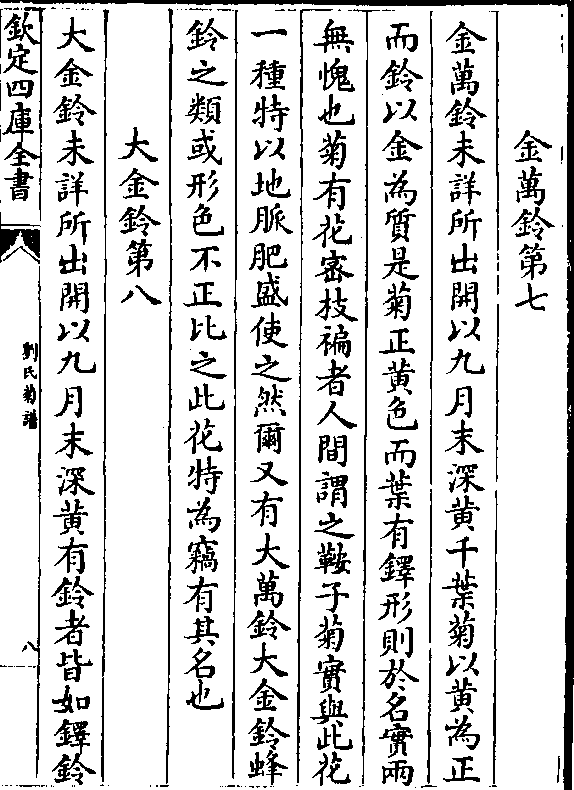 金萬鈴第七
金萬鈴未詳所出開以九月末深黄千葉菊以黄為正
而鈴以金為質是菊正黄色而葉有鐸形則於名實兩
無愧也菊有花宻枝褊者人間謂之鞍子菊實與此花
一種特以地脈肥盛使之然爾又有大萬鈴大金鈴蜂
鈴之類或形色不正比之此花特為竊有其名也
大金鈴第八
大金鈴未詳所出開以九月末深黄有鈴者皆如鐸鈴
欽定四庫全書
劉氏菊譜
八